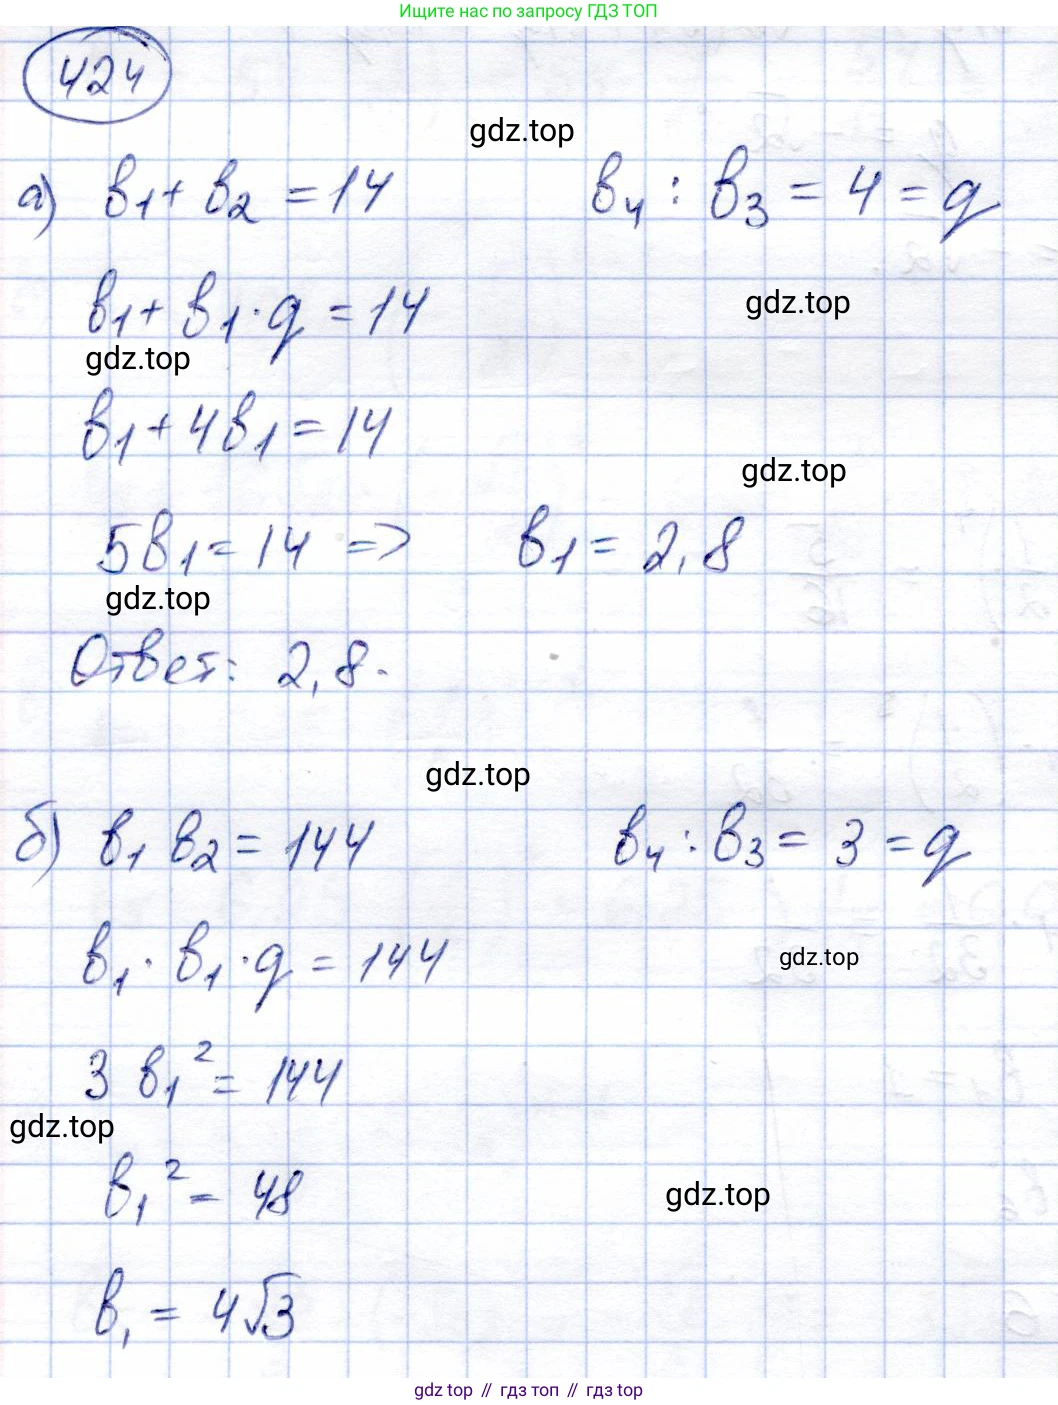 Ищите нас по запросу ГДЗ ТОП
424
gdz.top
а) b₁ + b₂ = 14 b₄ : b₃ = 4 = q
b₁ + b₁ · q = 14 gdz.top
gdz.top
b₁ + 4b₁ = 14
gdz.top
5b₁ = 14 => b₁ = 2,8
gdz.top
Ответ: 2,8.
gdz.top
б) b₁ b₂ = 144 b₄ : b₃ = 3 = q
b₁ · b₁ · q = 144 gdz.top
3 b₁² = 144
gdz.top
b₁² = 48 gdz.top
b₁ = 4√3
gdz top // гдз топ // гдз top